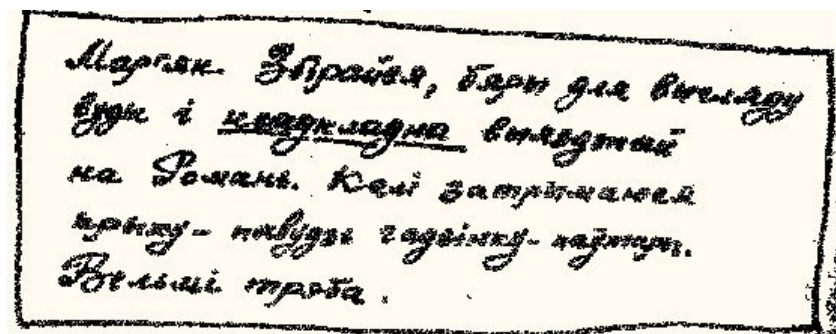 Мар'ян. Збірайся, бяры для выгляду
вуды і неадкладна выязджай
на Рамань. Калі затрымаюся
крыху - пабудзь гадзінку - паўтары.
Вельмі трэба.